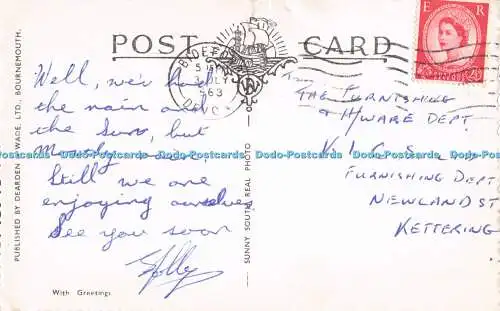 POST CARD
E R
BIDEFORD
JLY
1963
Well, we've had
the rain and
the sun, but
mostly rain
Still we are
enjoying ourselves
See you soon
With Greetings
PUBLISHED BY DEARDEN & WADE, LTD., BOURNEMOUTH.
SUNNY SOUTH REAL PHOTO
THE FURNISHING
& H/WARE DEPT.
K I C S
FURNISHING DEPT
NEWLAND ST
KETTERING
Dodo-Postcards Dodo-Postcards Dodo-Postcards Dodo-Postcards Dodo-Postcards